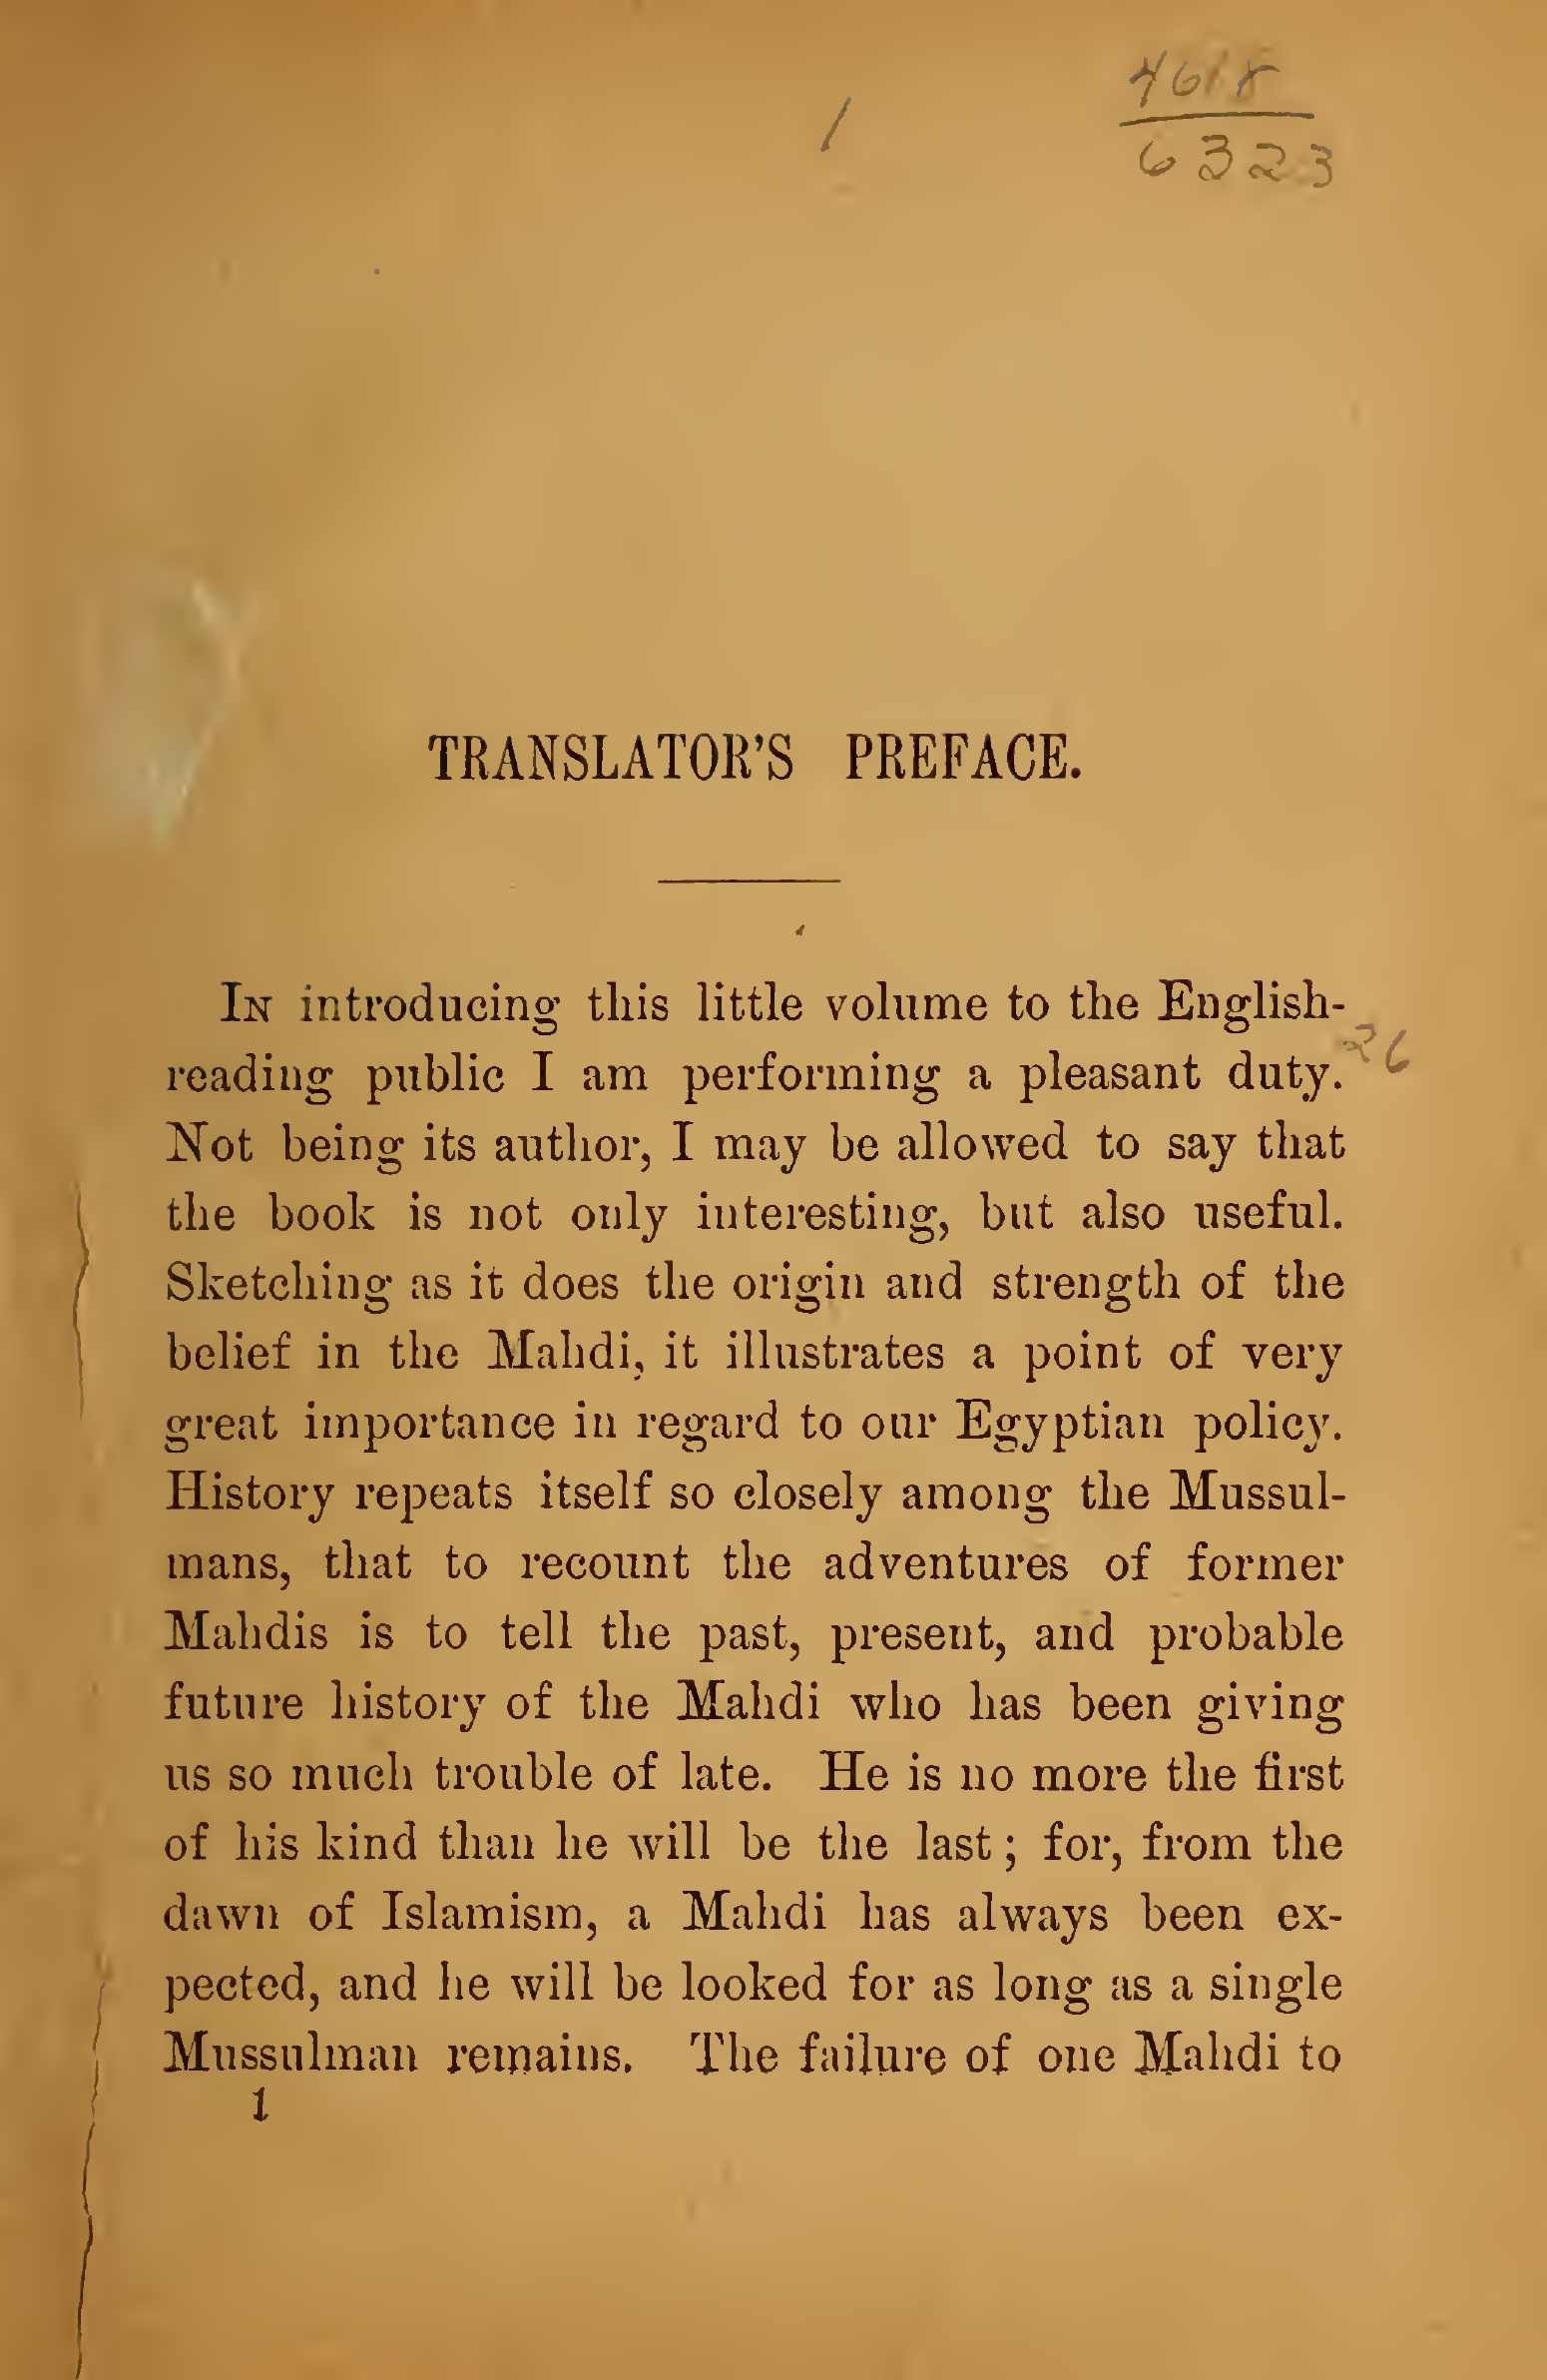 /
4618
6323
TRANSLATOR'S PREFACE.
IN introducing this little volume to the English-
26
reading public I am performing a pleasant duty.
Not being its author, I may be allowed to say that
the book is not only interesting, but also useful.
Sketching as it does the origin and strength of the
belief in the Mahdi, it illustrates a point of very
great importance in regard to our Egyptian policy.
History repeats itself so closely among the Mussul-
mans, that to recount the adventures of former
Mahdis is to tell the past, present, and probable
future history of the Mahdi who has been giving
us so much trouble of late. He is no more the first
of his kind than he will be the last; for, from the
dawn of Islamism, a Mahdi has always been ex-
pected, and he will be looked for as long as a single
Mussulman remains. The failure of one Mahdi to
1